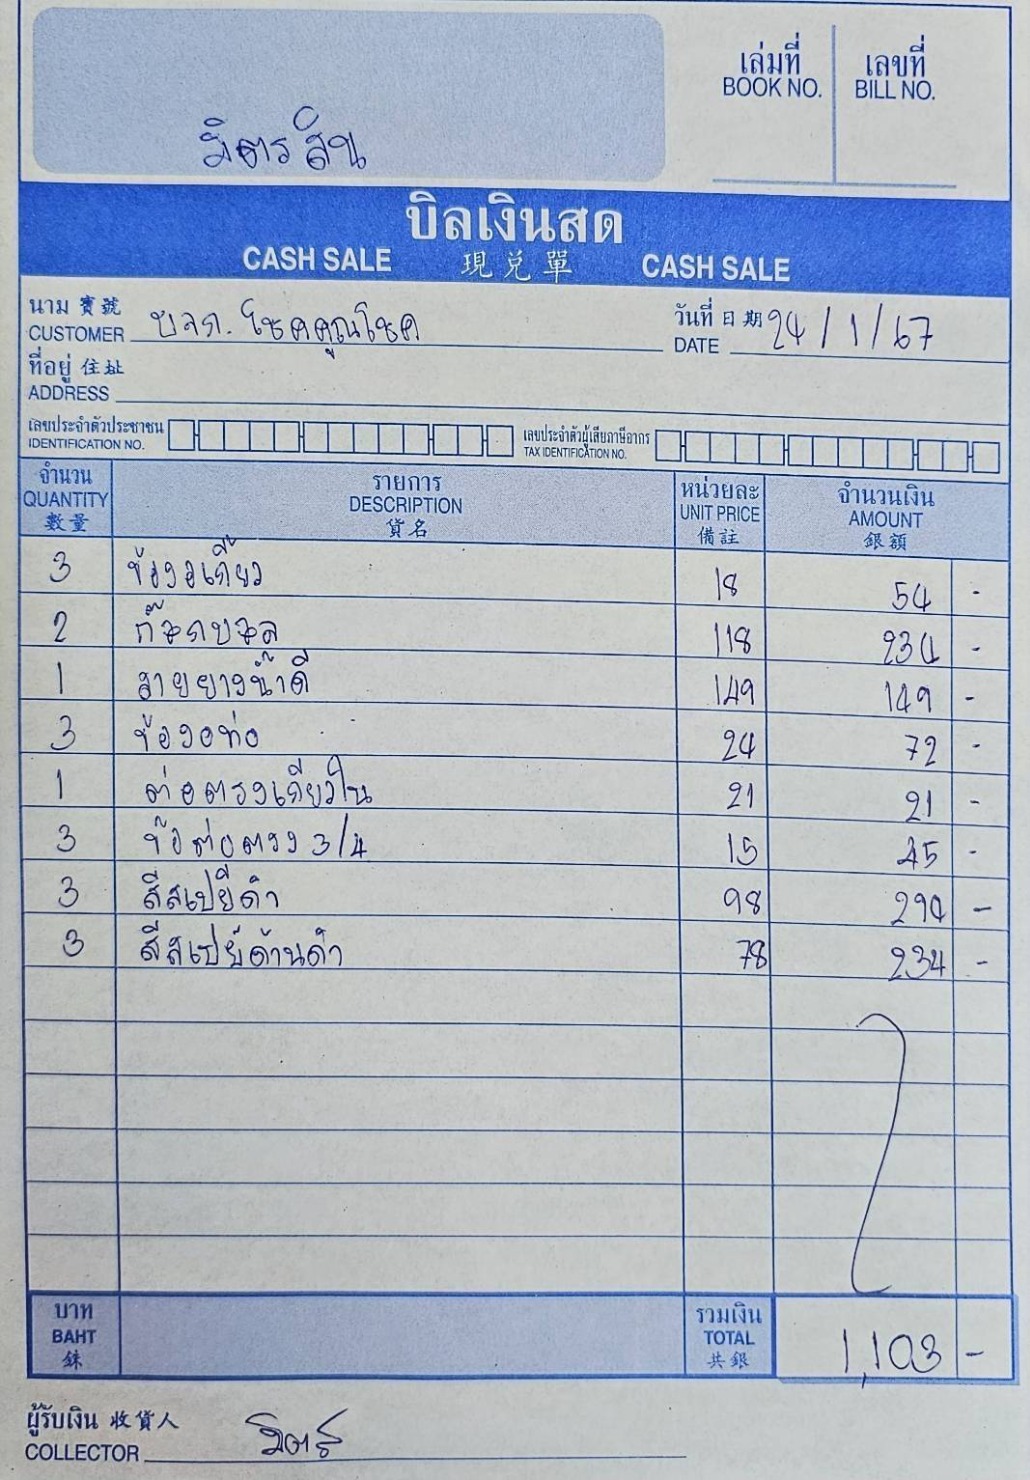 เล่มที่ เลขที่
BOOK NO. BILL NO.
มิตรสิน
บิลเงินสด
CASH SALE 現兌單 CASH SALE
นาม 寶號 บจก. โชคคูณโชค วันที่ 日期 24/1/67
CUSTOMER DATE
ที่อยู่ 住址
ADDRESS
เลขประจำตัวประชาชน เลขประจำตัวผู้เสียภาษีอากร
IDENTIFICATION NO. TAX IDENTIFICATION NO.
จำนวน รายการ หน่วยละ จำนวนเงิน
QUANTITY DESCRIPTION UNIT PRICE AMOUNT
數量 貨名 備註 銀額
3 ข้องอเกลียว 18 54 -
2 ก๊อกบอล 118 234 -
1 สายยางน้ำดี 149 149 -
3 ข้องอท่อ 24 72 -
1 ต่อตรงเกลียวใน 21 21 -
3 ข้อต่อตรง 3/4 15 45 -
3 สีสเปย์ดำ 98 294 -
3 สีสเปย์ด้านดำ 78 234 -
บาท รวมเงิน
BAHT TOTAL 1,103 -
銖 共銀
ผู้รับเงิน 收貨人
COLLECTOR